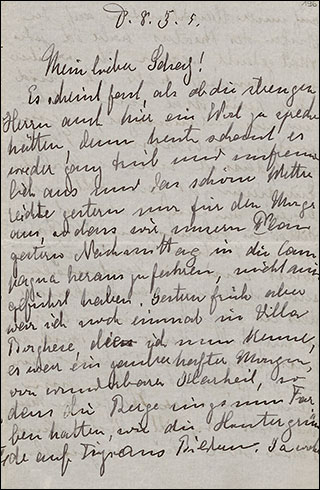 Mein lieber Schatz!
Es scheint fast als ob die strengen
Herrn auch hier ein Wort zu sprechen
hätten, denn heute scheint es
wieder ganz trüb und unfreund
lich aus und das schöne Wetter
reichte gestern nur für den Morgen
aus, sodass wir unsern Plan
gestern Nachmittag in die Cam
pagna herauszufahren, nicht aus
geführt haben. Gestern früh aber
war ich noch einmal in Villa
Borghese, die ich nun kenne,
es war ein zauberhafter Morgen,
von wunderbarer Klarheit, so
dass die Berge rings nun Far
ben hatten, wie die Hintergrün
de auf Tizians Bildern. Da